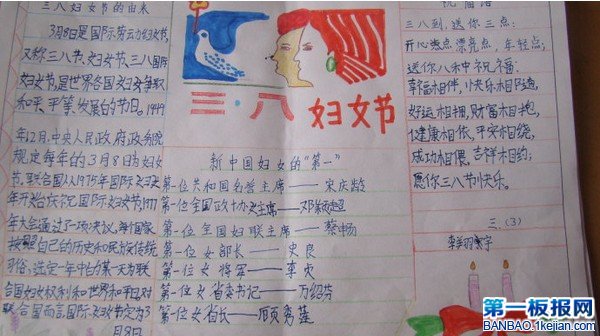 三八妇女节的由来
3月8是国际劳动妇女节,
又称三八节、妇女节、三八国际
妇女节,是世界各国妇女争取
和平、平等、发展的节日。1949
年12月,中央人民政府政务院
规定每年的3月8日为妇女
节。联合国从1975年国际妇女
年开始庆祝国际妇女节。1977
年大会通过了一项决议,每个国家
按照自己的历史和民族传统
习俗,选定一年中的某一天为联
合国妇女权利和世界和平日。对
联合国而言,国际妇女节定为3
月8日
三·八 妇女节
新中国妇女的"第一"
第一位共和国名誉主席——宋庆龄
第一位全国政协女主席——邓颖超
第一位全国妇联主席——蔡畅
第一位女部长——史良
第一位女将军——李贞
第一位女省委书记——万绍芬
第一位女省长——顾秀莲
祝福语
三八到,送你三点:
开心点漂亮点,年轻点;
送你八种祝福:
幸福相伴,快乐相随,
好运相拥,财富相抱,
健康相依,平安相绕,
成功相偎,吉祥相约;
愿你三八节快乐。
三、(3)
第一板报网
BANBAO.1kejian.com